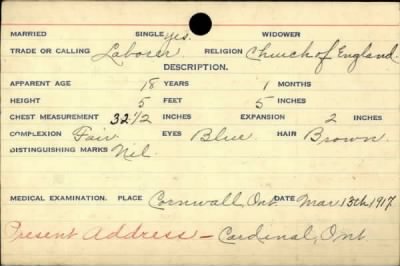 MARRIED SINGLE yes. WIDOWER
TRADE OR CALLING Laborer RELIGION Church of England.
DESCRIPTION.
APPARENT AGE 18 YEARS 1 MONTHS
HEIGHT 5 FEET 5 INCHES
CHEST MEASUREMENT 32 1/2 INCHES EXPANSION 2 INCHES
COMPLEXION Fair EYES Blue HAIR Brown
DISTINGUISHING MARKS Nil.
MEDICAL EXAMINATION. PLACE Cornwall, Ont DATE Mar 13th 1917
Present Address - Cardinal, Ont